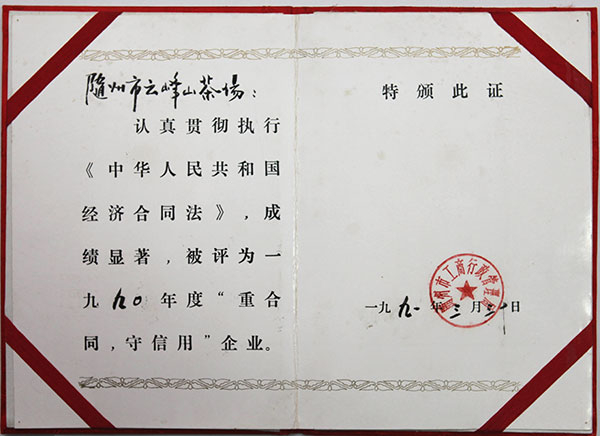 随州市云峰山茶场：
认真贯彻执行
《中华人民共和国
经济合同法》，成
绩显著，被评为一
九九0年度“重合
同，守信用”企业。
特颁此证
随州市工商行政管理局
一九九一年三月
日